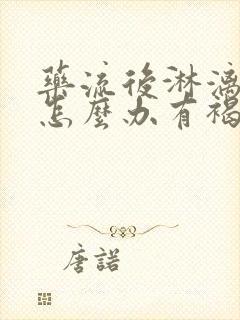 藥流後淋漓
怎麼办有褐
唐諾